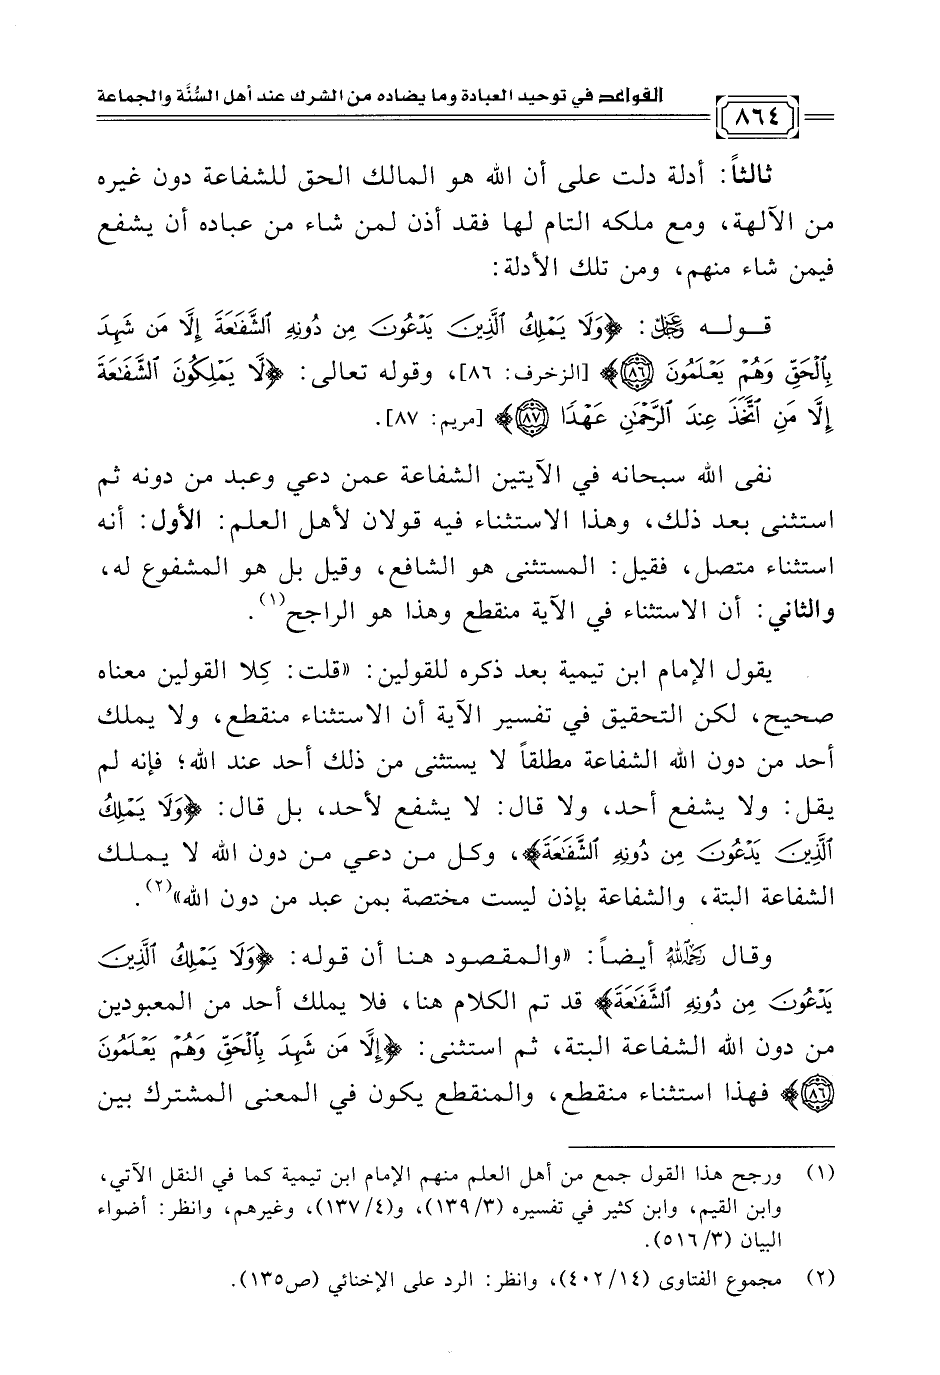 القواعد في توحيد العبادة وما يضاده من الشرك عند أهل السُّنَّة والجماعة
٨٦٤
ثالثاً: أدلة دلت على أن الله هو المالك الحق للشفاعة دون غيره
من الآلهة، ومع ملكه التام لها فقد أذن لمن شاء من عباده أن يشفع
فيمن شاء منهم، ومن تلك الأدلة:
قـولـه ﷻ: ﴿وَلَا يَمْلِكُ ٱلَّذِينَ يَدْعُونَ مِن دُونِهِ ٱلشَّفَٰعَةَ إِلَّا مَن شَهِدَ
بِٱلْحَقِّ وَهُمْ يَعْلَمُونَ ٨٦﴾ [الزخرف: ٨٦]، وقوله تعالى: ﴿لَّا يَمْلِكُونَ ٱلشَّفَٰعَةَ
إِلَّا مَنِ ٱتَّخَذَ عِندَ ٱلرَّحْمَٰنِ عَهْدًا ٨٧﴾ [مريم: ٨٧].
نفى الله سبحانه في الآيتين الشفاعة عمن دعي وعبد من دونه ثم
استثنى بعد ذلك، وهذا الاستثناء فيه قولان لأهل العلم: الأول: أنه
استثناء متصل، فقيل: المستثنى هو الشافع، وقيل بل هو المشفوع له،
والثاني: أن الاستثناء في الآية منقطع وهذا هو الراجح(١).
يقول الإمام ابن تيمية بعد ذكره للقولين: «قلت: كِلا القولين معناه
صحيح، لكن التحقيق في تفسير الآية أن الاستثناء منقطع، ولا يملك
أحد من دون الله الشفاعة مطلقاً لا يستثنى من ذلك أحد عند الله؛ فإنه لم
يقل: ولا يشفع أحد، ولا قال: لا يشفع لأحد، بل قال: ﴿وَلَا يَمْلِكُ
ٱلَّذِينَ يَدْعُونَ مِن دُونِهِ ٱلشَّفَٰعَةَ﴾، وكل من دعي من دون الله لا يملك
الشفاعة البتة، والشفاعة بإذن ليست مختصة بمن عبد من دون الله»(٢).
وقال رَحِمَهُ اللهُ أيضاً: «والمقصود هنا أن قوله: ﴿وَلَا يَمْلِكُ ٱلَّذِينَ
يَدْعُونَ مِن دُونِهِ ٱلشَّفَٰعَةَ﴾ قد تم الكلام هنا، فلا يملك أحد من المعبودين
من دون الله الشفاعة البتة، ثم استثنى: ﴿إِلَّا مَن شَهِدَ بِٱلْحَقِّ وَهُمْ يَعْلَمُونَ
٨٦﴾ فهذا استثناء منقطع، والمنقطع يكون في المعنى المشترك بين
(١) ورجح هذا القول جمع من أهل العلم منهم الإمام ابن تيمية كما في النقل الآتي،
وابن القيم، وابن كثير في تفسيره (١٣٩/٣)، و(١٣٧/٤)، وغيرهم، وانظر: أضواء
البيان (٥١٦/٣).
(٢) مجموع الفتاوى (٤٠٢/١٤)، وانظر: الرد على الإخنائي (ص١٣٥).